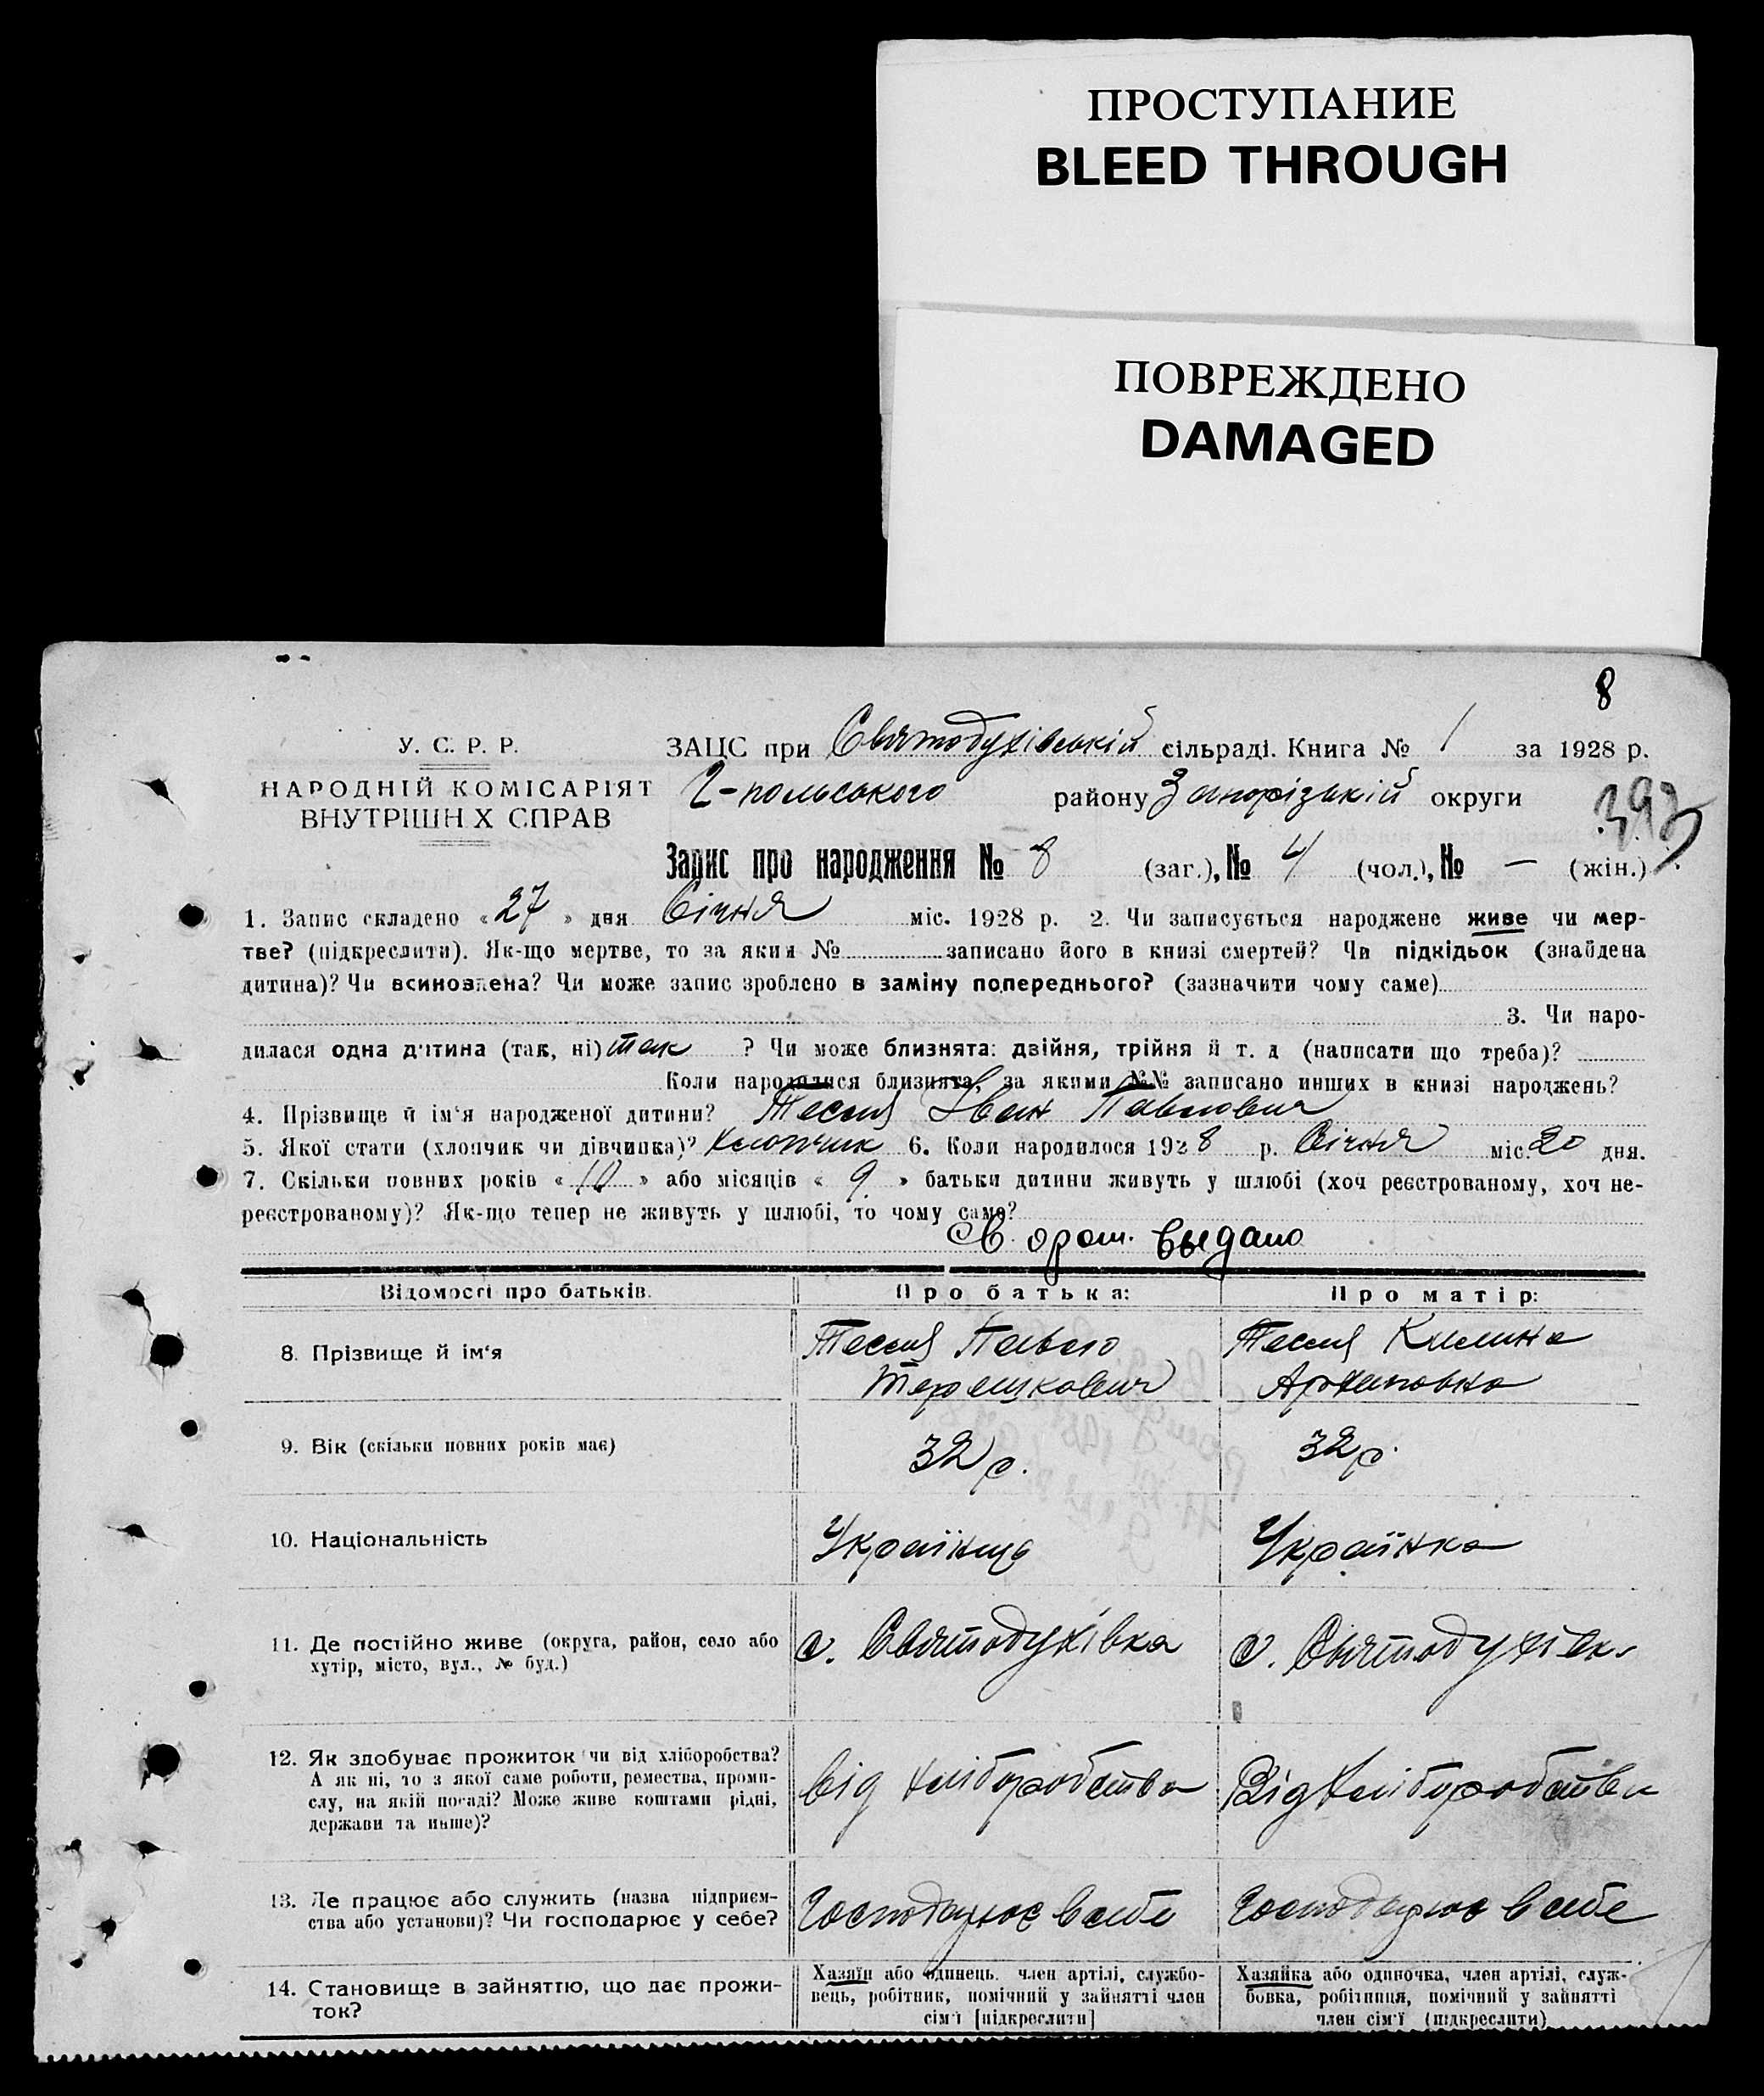 ПРОСТУПАНИЕ
BLEED THROUGH
ПОВРЕЖДЕНО
DAMAGED
8
У. С. Р. Р.
НАРОДНІЙ КОМІСАРІЯТ
ВНУТРІШН Х СПРАВ
ЗАЦС при Святодухівській сільраді. Книга № 1 за 1928 р.
Г-польського району Запорізькій округи
393
Запис про народження № 8 (заг.), № 4 (чол.), № — (жін.)
1. Запис складено «27» дня Січня міс. 1928 р. 2. Чи записується народжене живе чи мер-
тве? (підкреслити). Як-що мертве, то за яким № записано його в книзі смертей? Чи підкідьок (знайдена
дитина)? Чи всиновлена? Чи може запис зроблено в заміну попереднього? (зазначити чому саме)
3. Чи наро-
дилася одна дитина (так, ні) так ? Чи може близнята: двійня, трійня й т. д (написати що треба)?
Коли народилися близнята, за якими №№ записано инших в книзі народжень?
4. Прізвище й ім‘я народженої дитини? Іван Павлович
5. Якої стати (хлопчик чи дівчинка)? Хлопчик 6. Коли народилося 1928 р. Січня міс. 20 дня.
7. Скільки повних років «10» або місяців «9» батьки дитини живуть у шлюбі (хоч реєстрованому, хоч не-
реєстрованому)? Як-що тепер не живуть у шлюбі, то чому саме?
выдано
Відомості про батьків.
Про батька:
Про матір:
8. Прізвище й ім‘я
Павло
Терешкович
Килина
Архиповна
9. Вік (скільки повних років має)
32 р.
32 р.
10. Національність
Українць
Українка
11. Де постійно живе (округа, район, село або
хутір, місто, вул., № буд.)
с. Святодухівка
с. Святодухівк
12. Як здобуває прожиток чи від хліборобства?
А як ні, то з якої саме роботи, ремества, проми-
слу, на якій посаді? Може живе коштами рідні,
держави та инше)?
від хліборобства
Від хліборобства
13. Де працює або служить (назва підприєм-
ства або установи)? Чи господарює у себе?
Господарює в себе
Господарює в себе
14. Становище в зайняттю, що дає прожи-
ток?
Хазяїн або одинець, член артілі, службо-
вець, робітник, помічний у зайнятті член
сім‘ї [підкреслити]
Хазяйка або одиночка, член артілі, служ-
бовка, робітниця, помічний у зайнятті
член сім‘ї (підкреслити)